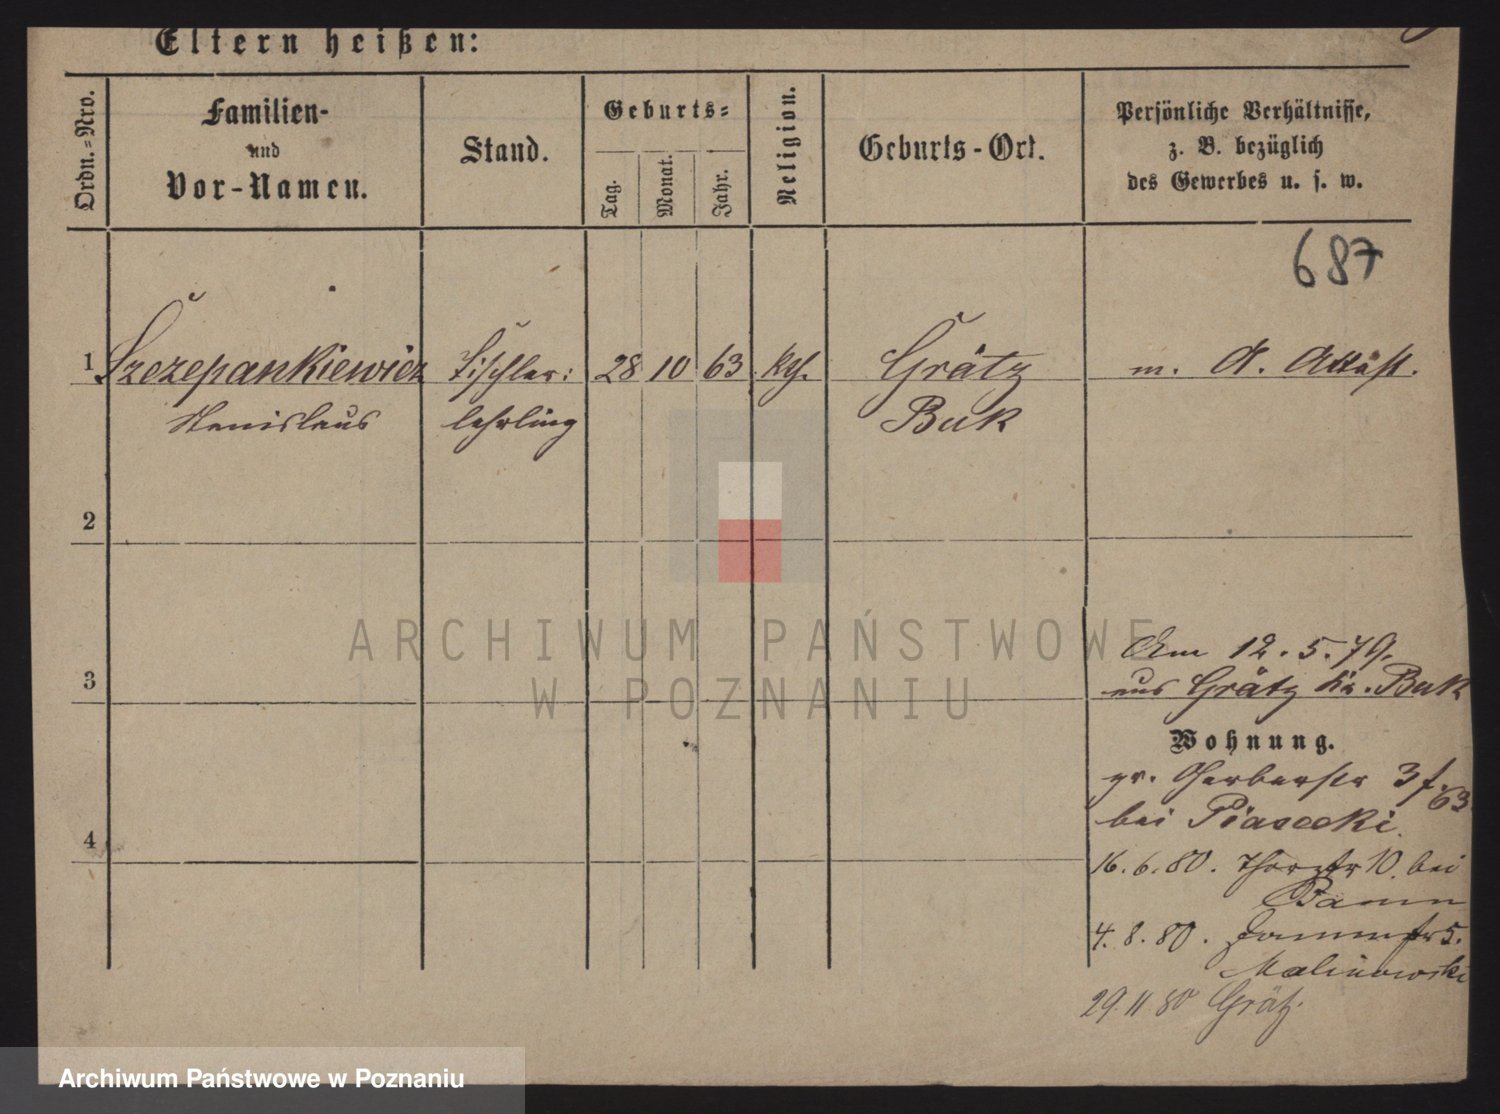 Eltern heißen:
Ordn.-Nro.
Familien-
und
Vor-Namen.
Stand.
Geburts-
Tag.
Monat.
Jahr.
Religion.
Geburts-Ort.
Persönliche Verhältnisse,
z. B. bezüglich
des Gewerbes u. s. w.
687
1 Szczepankiewicz Tischler: 28 10 63 kth. Grätz m. A. Attest.
Stanislaus lehrling Buk
2
3
4
Am 12.5.79.
aus Grätz Kr. Buk
Wohnung.
gr. Gerberstr 3 f. 63
bei Piasecki.
16.6.80. 10. bei
4.8.80. 5.
Malinowski
29.11.80 Grätz.
ARCHIWUM PAŃSTWOWE
W POZNANIU
Archiwum Państwowe w Poznaniu